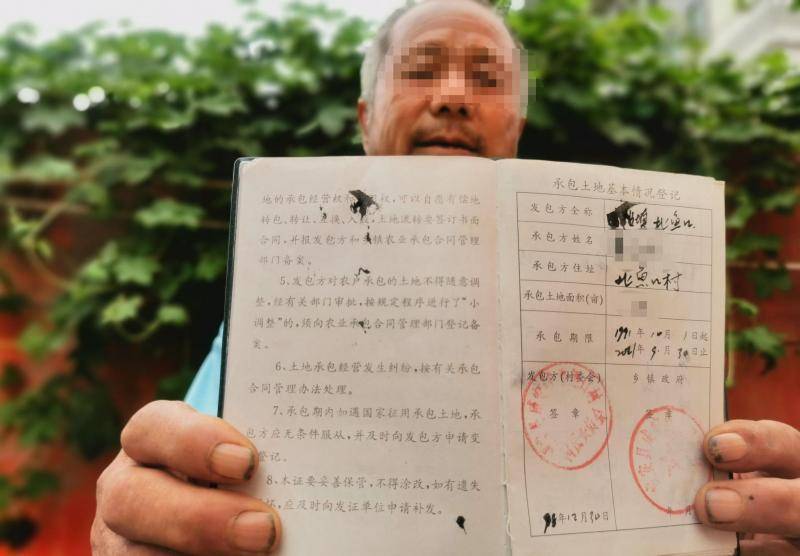 地的承包经营权
权，可以自愿有偿地
转包、转让、互换、入股，土地流转要签订书面
合同，并报发包方和乡镇农业承包合同管理
部门备案。
5、发包方对农户承包的土地不得随意调
整，经有关部门审批，按规定程序进行了“小
调整”的，须向农业承包合同管理部门登记备
案。
6、土地承包经营发生纠纷，按有关承包
合同管理办法处理。
7、承包期内如遇国家征用承包土地，承
包方应无条件服从，并及时向发包方申请变
更登记。
8、本证要妥善保管，不得涂改，如有遗失
损坏，应及时向发证单位申请补发。
承包土地基本情况登记
发包方全称
北鱼口
承包方姓名
承包方住址 北鱼口村
承包土地面积(亩)
承包期限 1991年10月1日起
2021年9月30日止
发包方(村委会) 乡镇政府
签章 签章
年12月30日
月